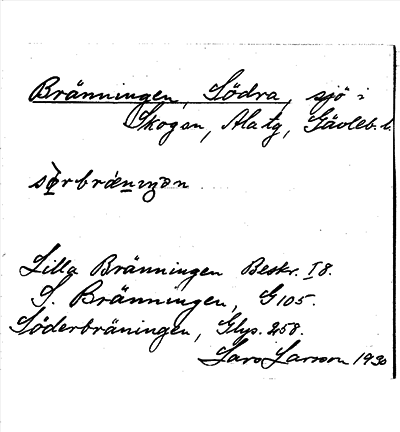 Bränningen, Södra, sjö i
Skogen, Ala tg, Gävleb. l.
sø̀rbrǽnıŋən
Lilla Bränningen Beskr. I 8.
S. Bränningen, G 105.
Söderbräningen, Glys. 258.
Lars Larsson 1930